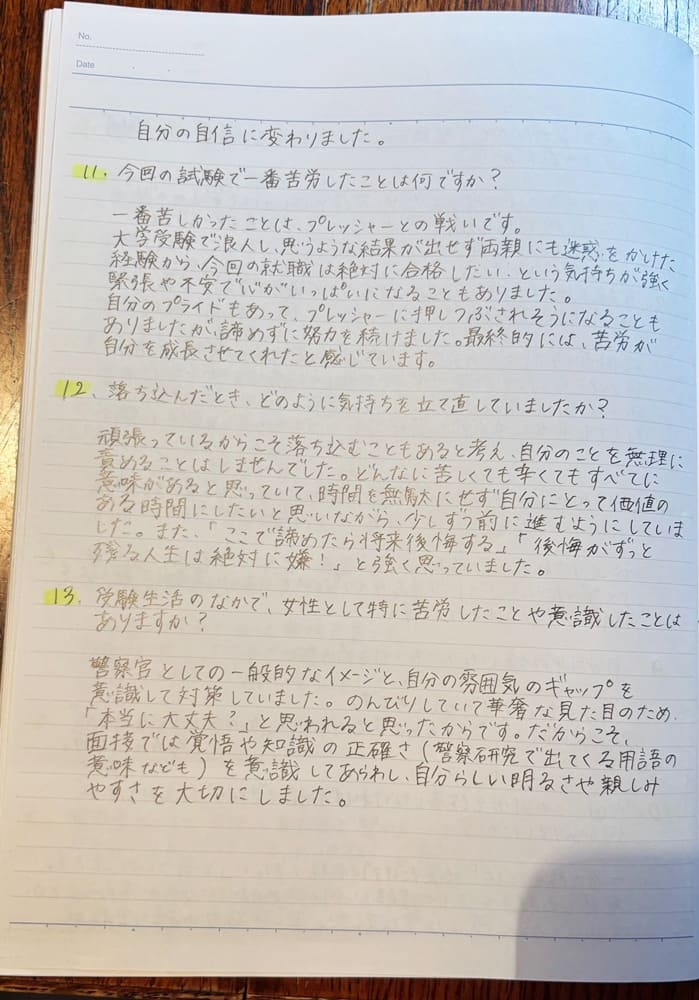 No.
Date
自分の自信に変わりました。
11. 今回の試験で一番苦労したことは何ですか？
一番苦しかったことは、プレッシャーとの戦いです。
大学受験で浪人し、思うような結果が出せず両親にも迷惑をかけた
経験から、今回の就職は絶対に合格したい、という気持ちが強く
緊張や不安で心がいっぱいになることもありました。
自分のプライドもあって、プレッシャーに押しつぶされそうになることも
ありましたが、諦めずに努力を続けました。最終的には、苦労が
自分を成長させてくれたと感じています。
12. 落ち込んだとき、どのように気持ちを立て直していましたか？
頑張っているからこそ落ち込むこともあると考え、自分のことを無理に
責めることはしませんでした。どんなに苦しくても辛くてもすべてに
意味があると思っていて、時間を無駄にせず自分にとって価値の
ある時間にしたいと思いながら、少しずつ前に進むようにしていま
した。また、「ここで諦めたら将来後悔する」「後悔がずっと
残る人生は絶対に嫌！」と強く思っていました。
13. 受験生活のなかで、女性として特に苦労したことや意識したことは
ありますか？
警察官としての一般的なイメージと、自分の雰囲気のギャップを
意識して対策していました。のんびりしていて華奢な見た目のため、
「本当に大丈夫？」と思われると思ったからです。だからこそ、
面接では覚悟や知識の正確さ（警察研究で出てくる用語の
意味なども）を意識してあらわし、自分らしい明るさや親しみ
やすさを大切にしました。